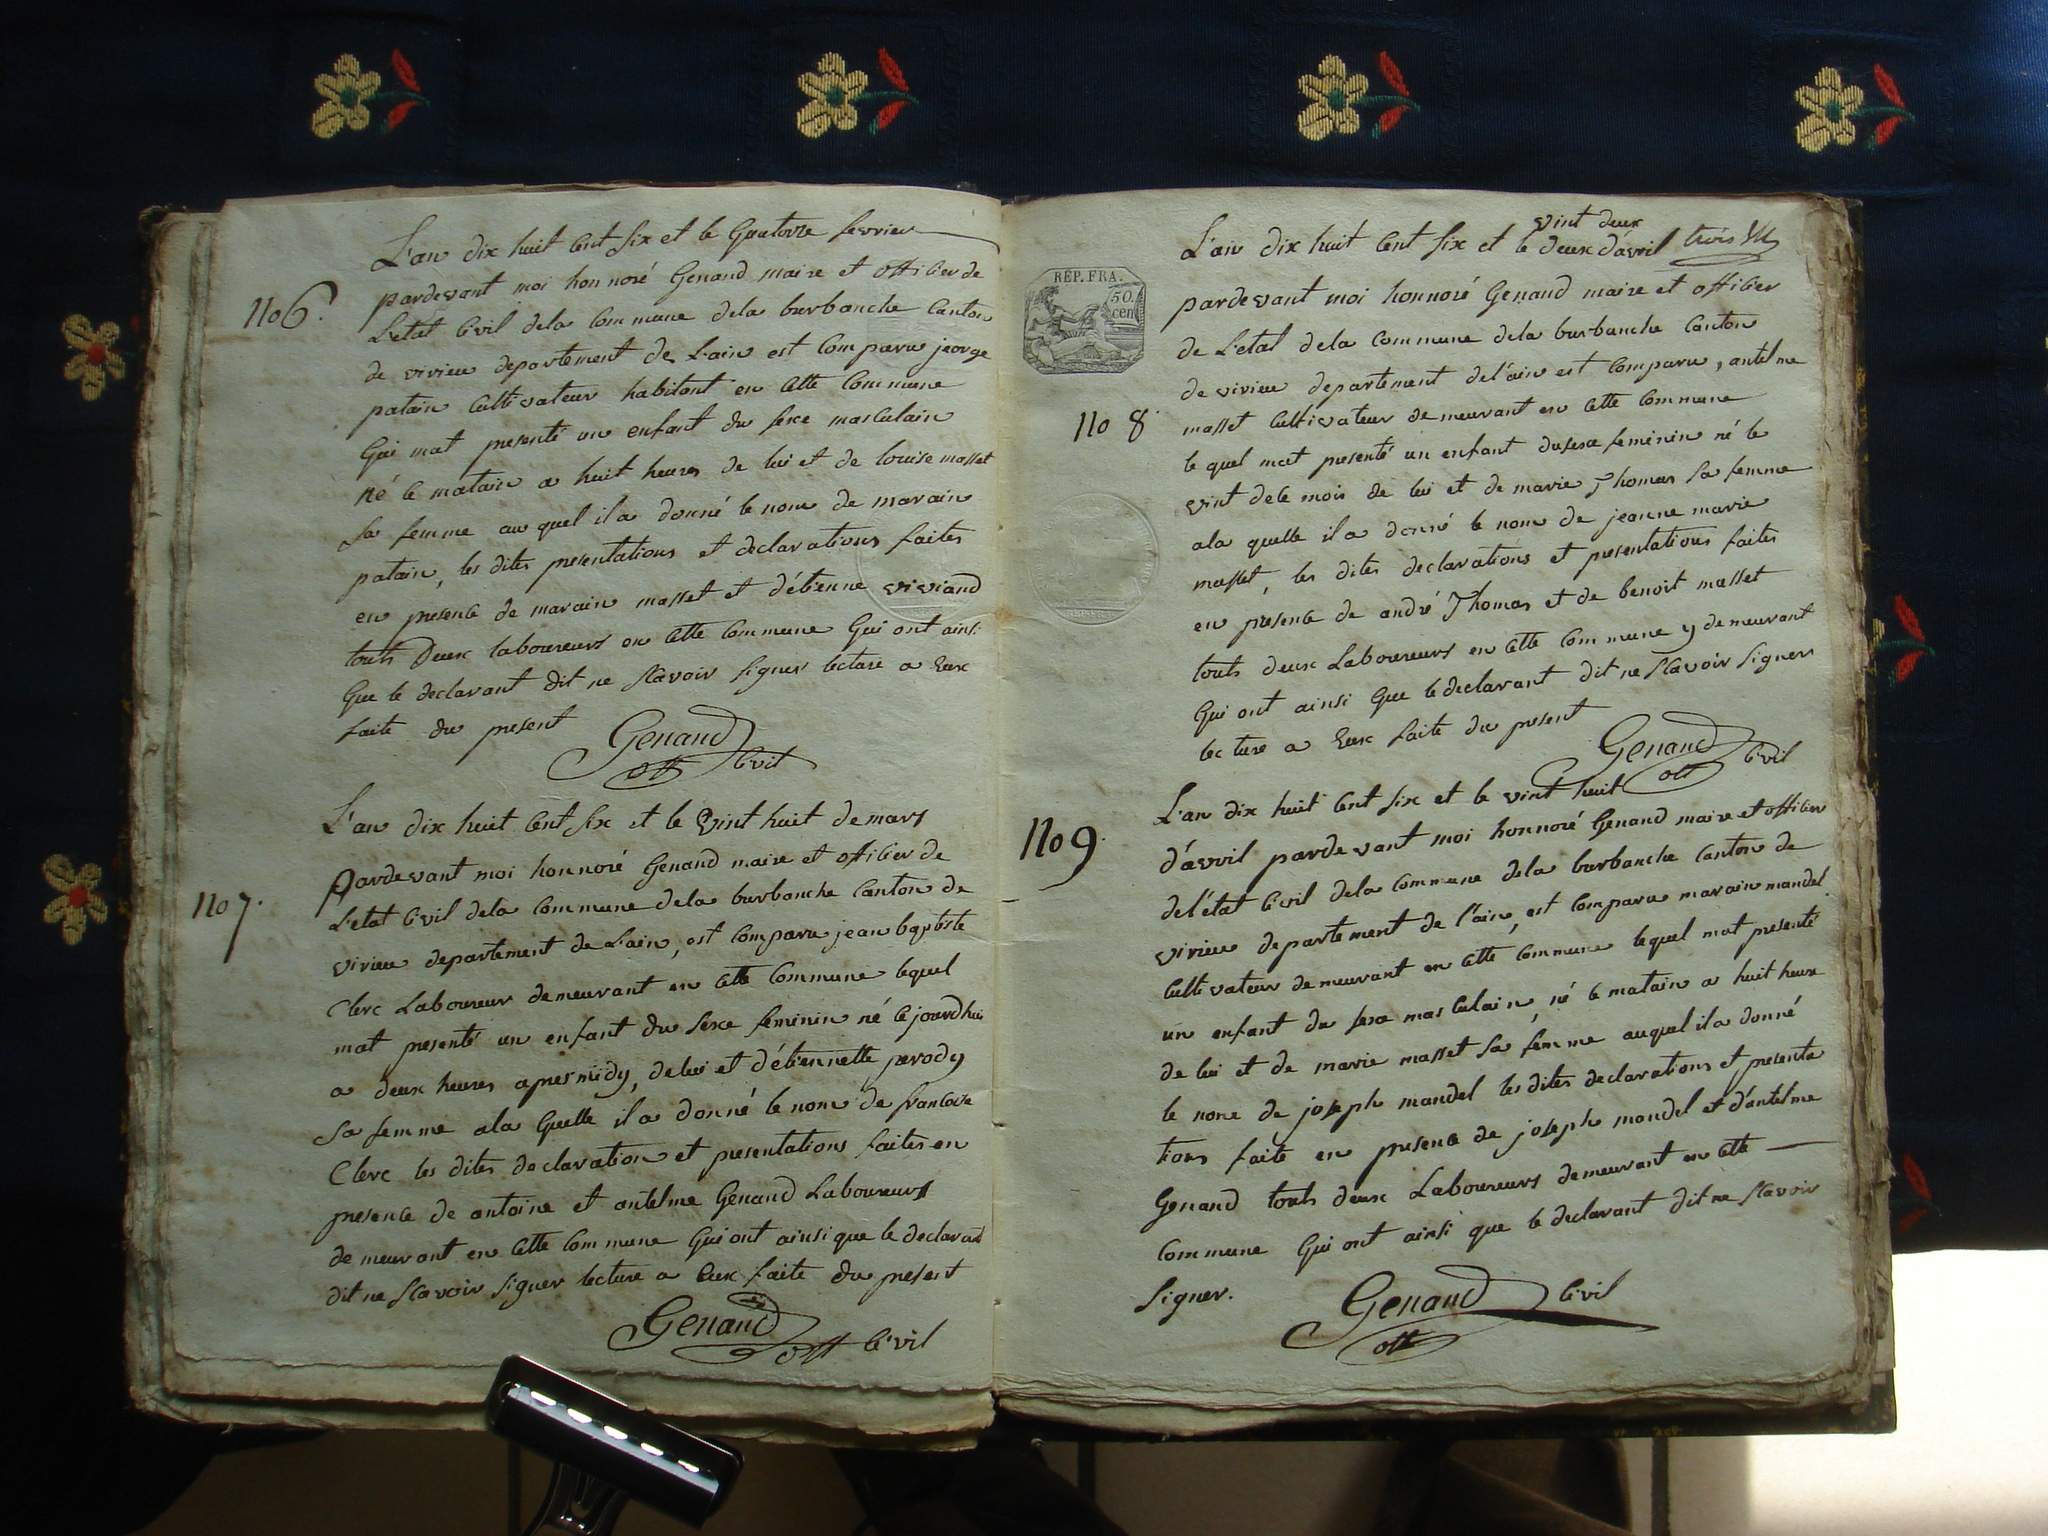 L'an dix huit cent six et le Quatorze fevrier
no 6.
pardevant moi honnoré Genand maire et officier de
L'etat Civil dela Commune dela burbanche Canton
de virieu departement de Lain est Comparu jeorge
patain Cultivateur habitant en Cette Commune
Qui mat presenté un enfant du sexe masculain
né le matain a huit heures de lui et de Louise masset
sa femme au quel il a donné le nom de marain
patain, les dites presentations et declarations faites
en presence de marain masset et d'étienne viviand
touts Deux laboureurs en Cette Commune Qui ont ainsi
Que le declarant dit ne scavoir signer lecture a Eux
faite du present
Genand
off Civil
L'an dix huit Cent six et le vint huit de mars
no 7.
pardevant moi honnoré Genand maire et officier de
L'etat Civil dela Commune dela burbanche Canton de
virieu departement de Lain, est Comparu jean baptiste
Clerc Laboureur demeurant en Cette Commune lequel
mat presenté un enfant du sexe feminin né le jourdhui
a deux heures apresmidy, delui et d'étiennette parody
sa femme ala Quelle il a donné le nom de francoise
Clerc les dites declaration et presentations faites en
presence de antoine et antelme Genand Laboureurs
de meurant en Cette Commune Qui ont ainsi que le declarant
dit ne scavoir signer lecture a Eux faite du present
Genand
off Civil
vint deux
L'an dix huit Cent six et le deux d'avril trois
RÉP. FRA.
50.
cen
pardevant moi honnoré Genand maire et officier
de L'etat dela Commune dela burbanche Canton
de virieu departement del'ain est Comparu, antelme
no 8.
masset Cultivateur demeurant en Cette Commune
le quel mat presenté un enfant dusexe feminin né le
vint dele mois de lui et de marie Thomas sa femme
ala quelle il a donné le nom de jeanne marie
masset, les dites declarations et presentations faites
en presence de andré Thomas et de benoit masset
touts deux Laboureurs en Cette Commune y demeurant
Qui ont ainsi Que le declarant dit ne scavoir signer
lecture a Eux faite du present
Genand
off Civil
L'an dix huit Cent six et le vint huit
no 9.
d'avril pardevant moi honnoré Genand maire et officier
del'état Civil dela Commune dela burbanche Canton de
virieu departement de l'ain, est Comparu marain mandel
Cultivateur demeurant en Cette Commune lequel mat presenté
un enfant du sexe masculain, né le matain a huit heure
de lui et de marie masset sa femme auquel il a donné
le nom de joseph mandel les dites declarations et presenta
tions faite en presence de joseph mandel et d'antelme
Genand touts deux Laboureurs demeurant en Cette
Commune Qui ont ainsi que le declarant dit ne scavoir
signer.
Genand
off Civil